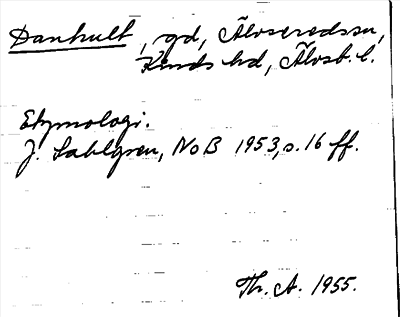 Danhult, gd, Älvseredssn,
Kinds hd, Älvsb. l.
Etymologi.
J. Sahlgren, NoB 1953, s. 16 ff.
Th. A. 1955.